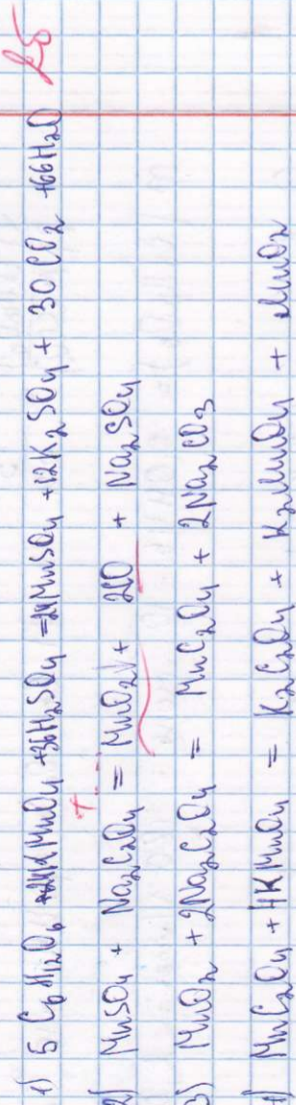 1) 5 C₆H₁₂O₆ + 24KMnO₄ + 36H₂SO₄ = 24MnSO₄ + 12K₂SO₄ + 30CO₂ + 66H₂O
2) MnSO₄ + Na₂C₂O₄ = MnO₂↓ + 2CO + Na₂SO₄
3) MnO₂ + 2Na₂C₂O₄ = MnC₂O₄ + 2Na₂CO₃
4) MnC₂O₄ + 4KMnO₄ = K₂C₂O₄ + K₂MnO₄ + MnO₂